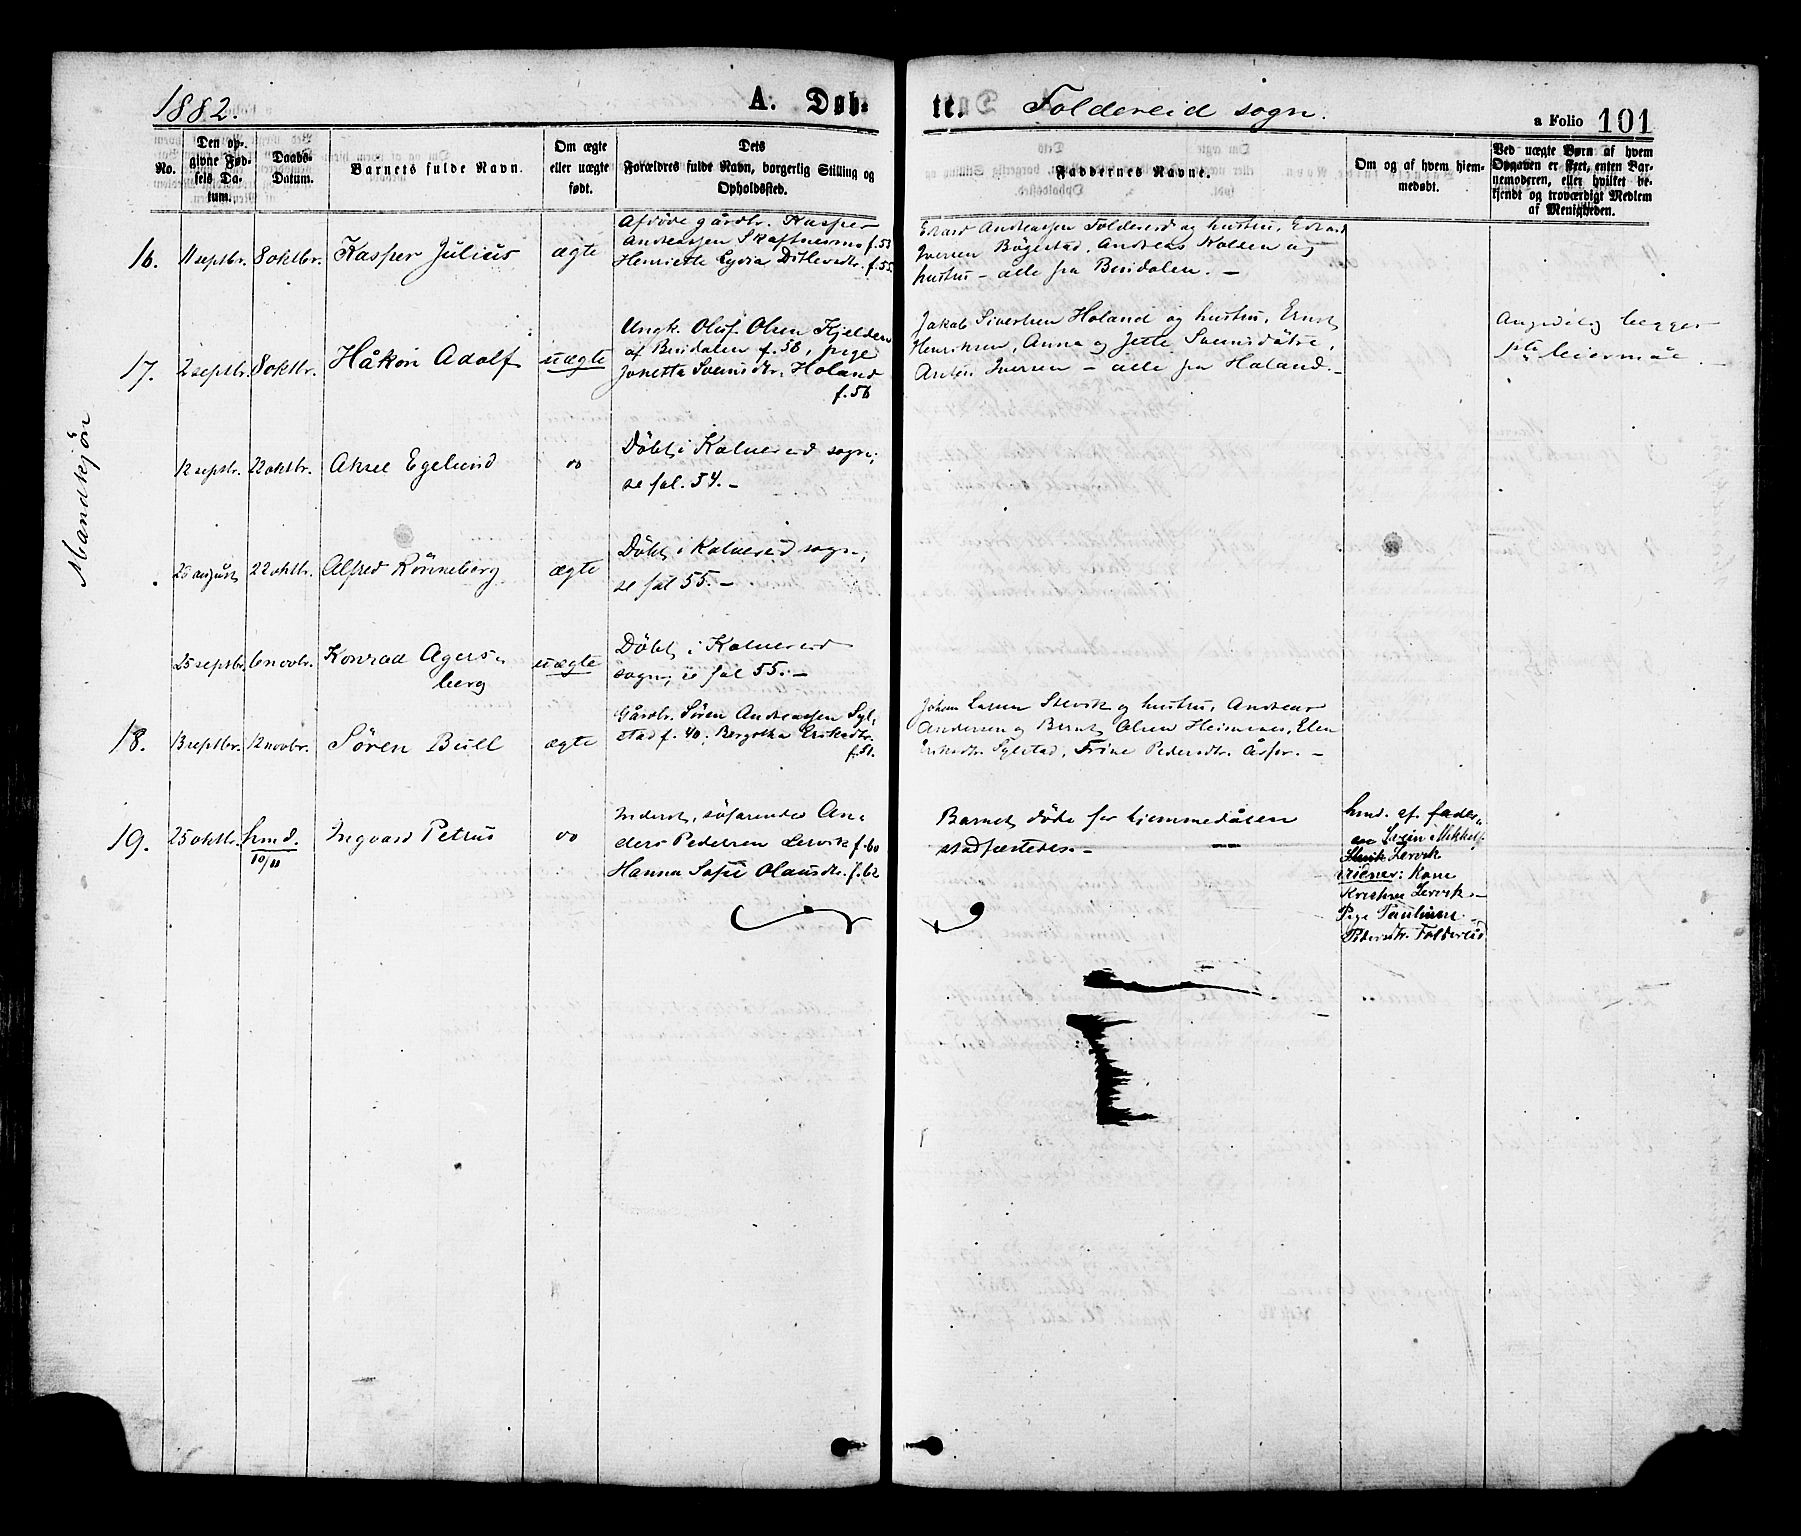 1882.
A. Døb-
te.
Foldereid sogn.
a Folio 101
No.
Den op-
givne Fød-
sels Da-
tum.
Daabs-
Datum.
Barnets fulde Navn.
Om ægte
eller uægte
født.
Dets
Forældres fulde Navn, borgerlig Stilling og
Opholdssted.
Faddernes Navne.
Om og af hvem hjem-
medøbt.
Ved uægte Børn af hvem
Opgaven er skeet, enten Bar-
nemoderen, eller hvilket be-
kjendt og troværdigt Medlem
af Menigheden.
Mandkjön
16.
11 septbr.
8 oktbr.
Kasper Julius
ægte
Afdöde gårdbr. Kasper
Andreassen Skaftnesmo f. 53
Henriette Lydia Ditlevsdtr. f. 55.
Edvard Andreassen Foldereid og hustru, Edvard
Iversen Bögestad, Andreas Kolsen og
hustru – alle fra Bindalen. –
17.
2 septbr.
8 oktbr.
Håkon Adolf
uægte
Ungk. Oluf Olsen Kjelden
af Bindalen f. 58, pige
Jonetta Svensdtr. Holand
f. 56
Jakob Sivertsen Holand og hustru, Ernst
Henriksen, Anna og Jette Svensdötre,
Anton Iversen – alle fra Holand. –
Angivelig begges
1ste leiermål. –
12 septbr.
22 oktbr.
Aksel Egelund
"
Döbt i Kolvereid sogn;
se fol. 54. –
26 august
22 oktbr.
Alfred Rönneberg
ægte
Döbt i Kolvereid sogn;
se fol 55. –
25 septbr.
6 novbr.
Konrad Agers-
berg
uægte
Döbt i Kolvereid
sogn; se fol 55. –
18.
13 septbr.
12 novbr.
Sören Bull
ægte
Gårdbr. Sören Andreassen Syl-
stad f. 40; Bergitha Eriksdtr.
f. 51.
Johan Larsen Stevik og hustru, Andreas
Andersen og Bernt Olsen Heimenes, Elen
Eriksdtr. Sylstad, Trine Pedersdtr. –
19.
25 oktbr.
hmd.
10/11
Ingvard Petrus
"
Inderst, söfarende An-
ders Pedersen Lervik f. 60
Hanna Sofie Olausdtr. f. 62
Barnet döde för hjemmedåben
stadfæstedes. –
hmd. af fader-
en Svein Mikkels.
Lervik
vidner: Kone
Lervik –
Pige Pauline
Pedersdtr. Foldereid